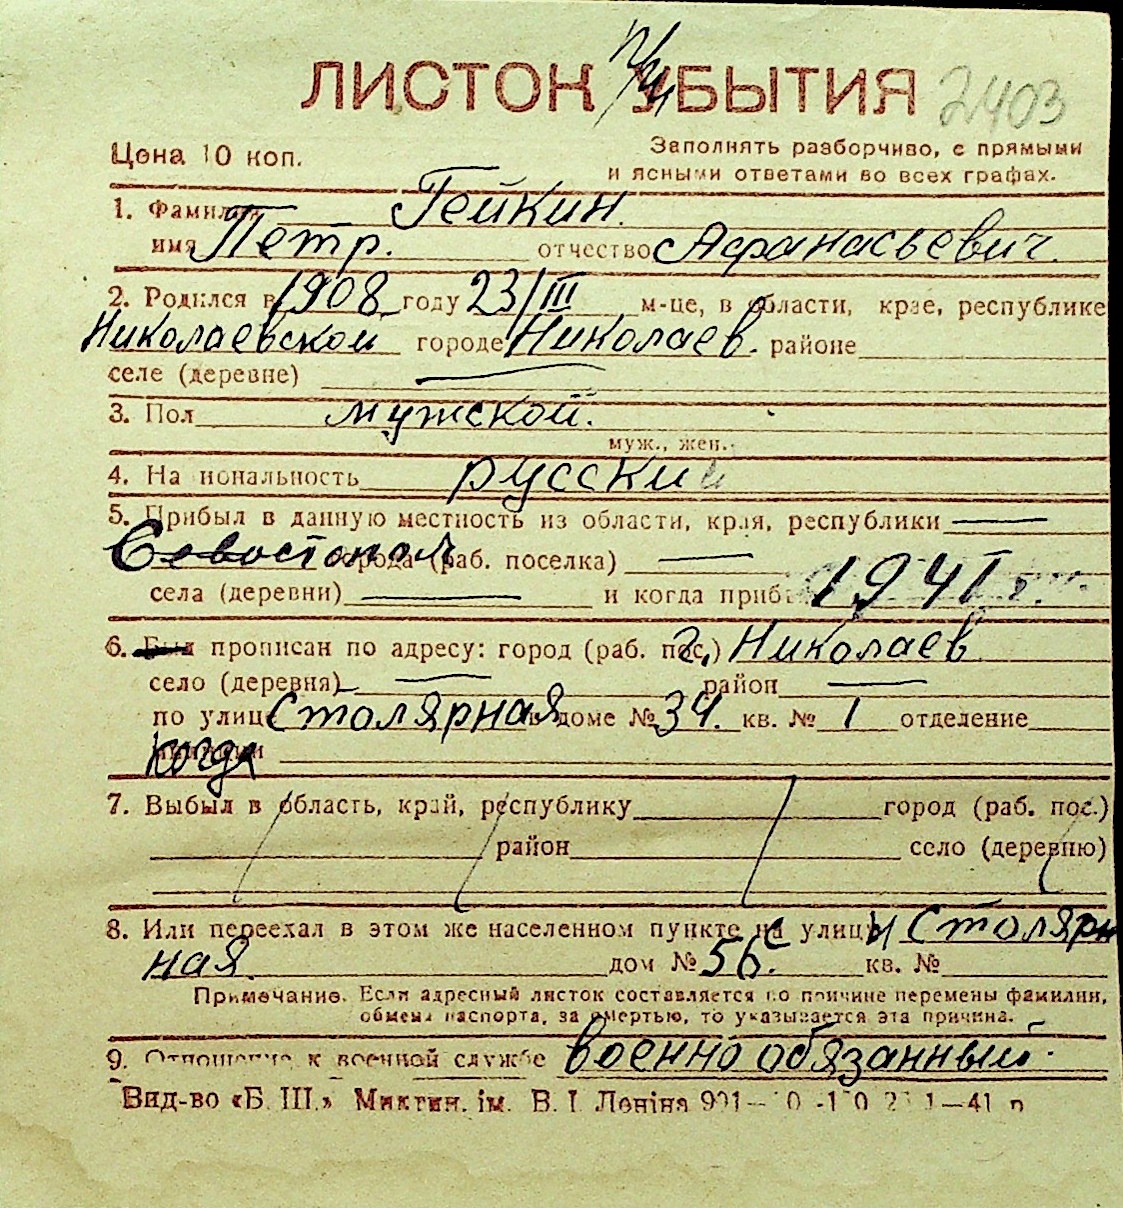 ЛИСТОК УБЫТИЯ 2403
Цена 10 коп.
Заполнять разборчиво, с прямыми
и ясными ответами во всех графах.
1. Фамилия Гейкин.
имя Петр. отчество Афанасьевич.
2. Родился в 1908 году 23/III м-це, в области, крае, республике
Николаевской городе Николаев. районе
селе (деревне) —
3. Пол мужской.
муж., жен.
4. Национальность русский
5. Прибыл в данную местность из области, края, республики —
Севостопол города (раб. поселка) —
села (деревни) — и когда приб 1941 г.
6. Был прописан по адресу: город (раб. пос.) г. Николаев
село (деревня) — район —
по улице Столярная в доме № 34. кв. № 1 отделение
когда
7. Выбыл в область, край, республику город (раб. пос.)
район село (деревню)
8. Или переехал в этом же населенном пункте на с улицы Столярн
ная. дом № 56. кв. №
Примечание. Если адресный листок составляется по причине перемены фамилии,
обмена паспорта, за смертью, то указывается эта причина.
9. Отношение к военной службе военнообязанный.
Вид-во «Б. Ш.» Миктин. ім. В. І. Леніна